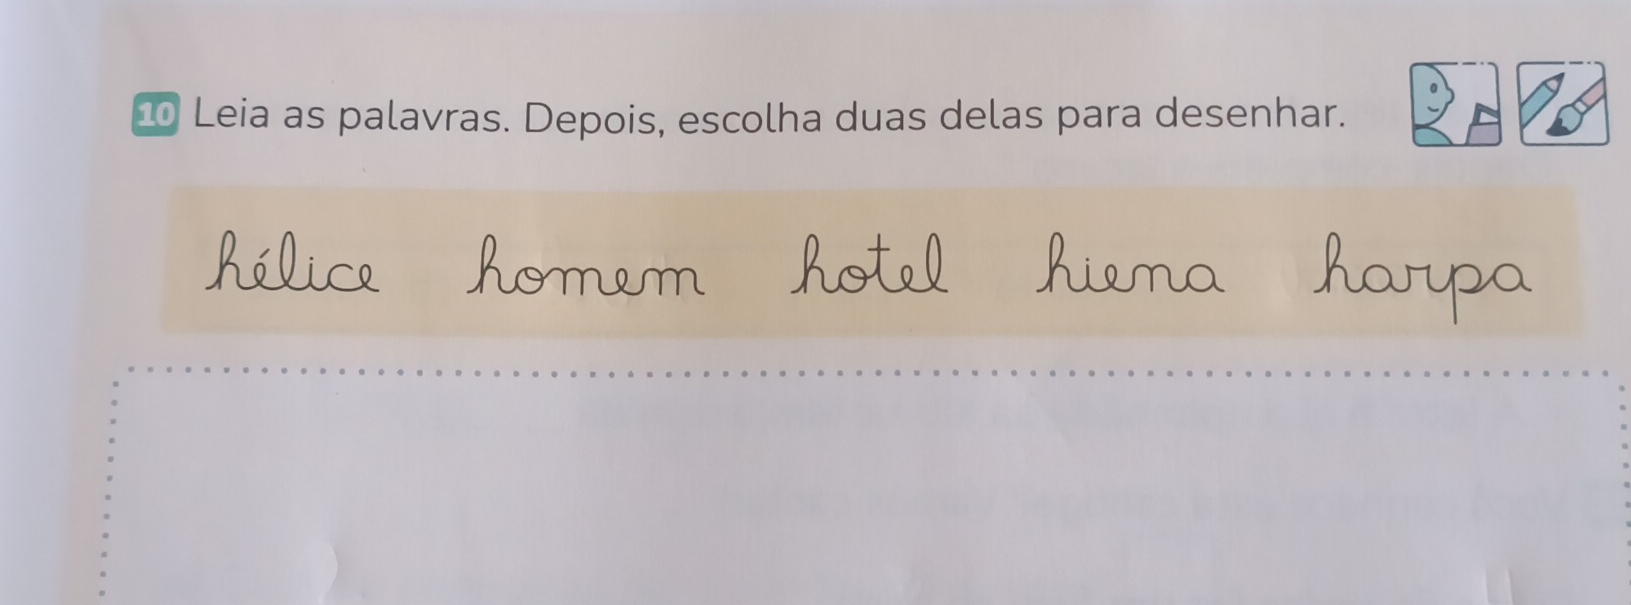 10 Leia as palavras. Depois, escolha duas delas para desenhar.
hélice homem hotel hiena harpa